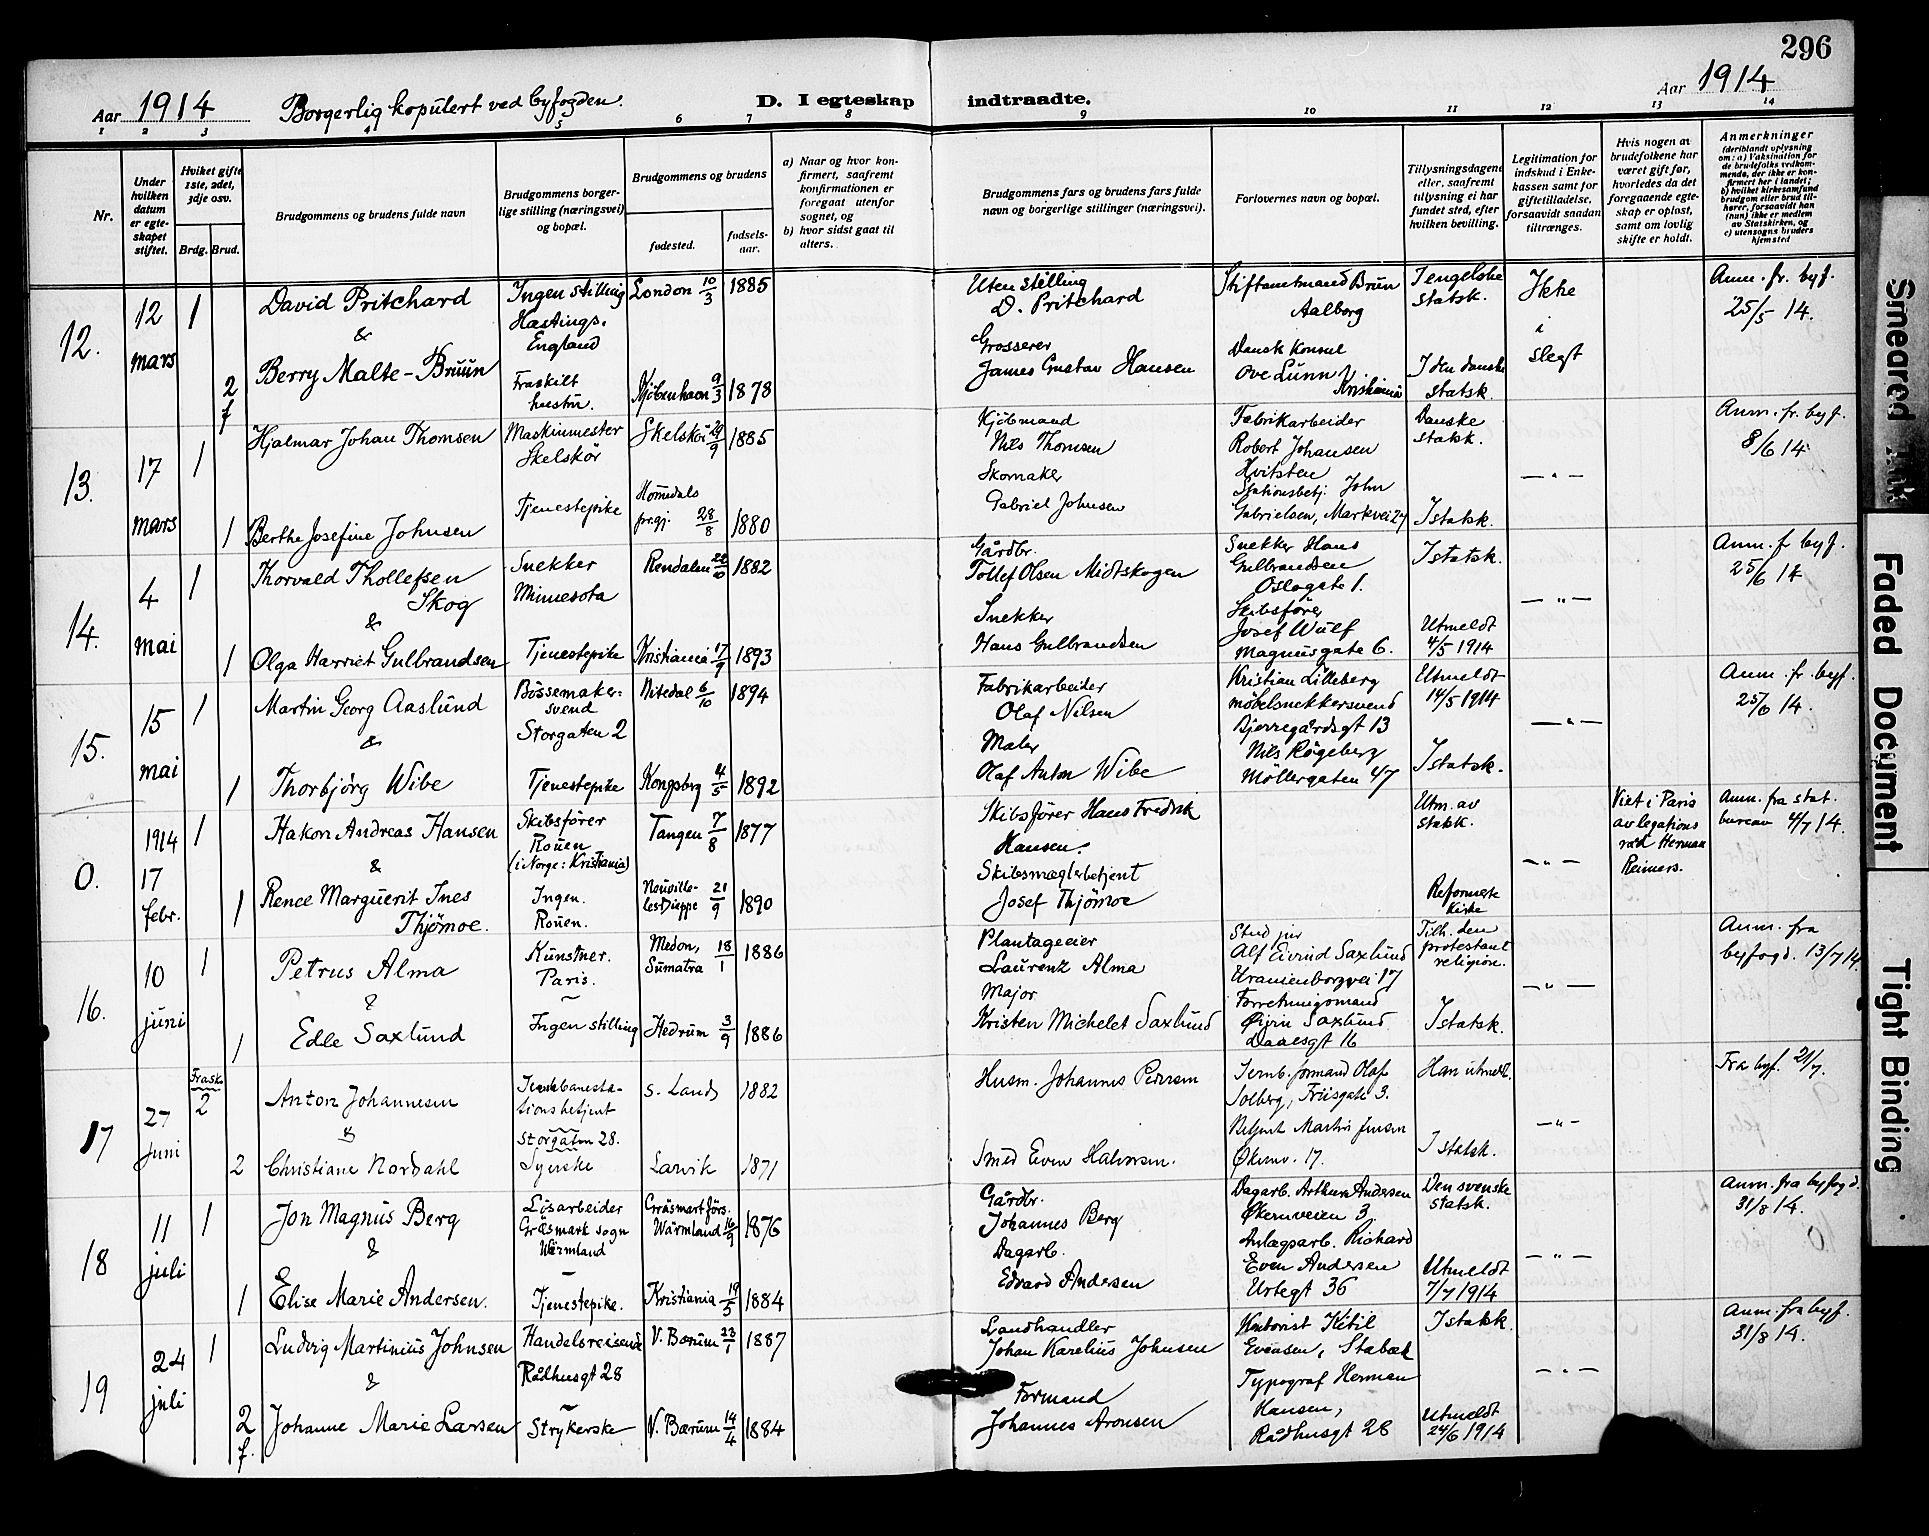 296
Aar 1914 Borgerlig kopulert ved byfogden. D. I egteskap indtraadte. Aar 1914
1 2 3 4 5 6 7 8 9 10 11 12 13 14
Nr.
Under hvilken datum er egteskapet stiftet.
Hvilket gifte 1ste, 2det, 3dje osv.
Brdg. Brud.
Brudgommens og brudens fulde navn
Brudgommens borgerlige stilling (næringsvei) og bopæl.
Brudgommens og brudens
fødested.
fødsels-aar.
a) Naar og hvor konfirmert, saafremt konfirmationen er foregaat utenfor sognet, og
b) hvor sidst gaat til alters.
Brudgommens fars og brudens fars fulde navn og borgerlige stillinger (næringsvei).
Forlovernes navn og bopæl.
Tillysningsdagene eller, saafremt tillysning ei har fundet sted, efter hvilken bevilling.
Legitimation for indskud i Enkekassen samt for giftetilladelse, forsaavidt saadan tiltrænges.
Hvis nogen av brudefolkene har været gift før, hvorledes da det foregaaende egteskap er opløst, samt om lovlig skifte er holdt.
Anmerkninger
(deriblandt oplysning om: a) Vaksination for de brudefolks vedkommende, der ikke er konfirmert her i landet; b) hvilket kirkesamfund brudgom eller brud tilhører, forsaavidt han (hun) ikke er medlem av Statskirken, og c) utensogns bruders hjemsted
12. 12 mars 1 David Pritchard
&
2 f Berry Malte-Bruun
Ingen stilling Hastings. England
Fraskilt hustru.
London 10/3 1885
Kjøbenhavn 9/3 1878
Uten stilling D. Pritchard
Grosserer James Gustav Hansen
Stiftamtmand Brun Aalborg
Dansk Konsul Ove Lunn, Kristiania
I engelske statsk.
I den danske statsk.
Ikke i slegt
Anm. fr. byf. 25/5 14.
13. 17 mars 1 Hjalmar Johan Thomsen
1 Berthe Josefine Johnsen
Maskinmester Skelskör
Tjenestepike
Skelskör 29/9 1885
Hommedals prgj. 28/8 1880
Kjøbmand Nils Thomsen
Skomaker Gabriel Johnsen
Fabrikarbeider Robert Johansen Hvitsten
Stationsbetj. John Gabrielsen, Markvei 27
Danske statsk.
I statsk.
— " —
Anm. fr. byf. 8/6 14
14. 4 mai 1 Thorvald Thollefsen Skog
&
1 Olga Harriet Gulbrandsen
Snekker Minnesota
Tjenestepike
Rendalen 22/10 1882
Kristiania 17/9 1893
Gårdbr. Tollef Olsen Midtskogen
Snekker Hans Gulbrandsen
Snekker Hans Gulbrandsen Oslogate 1.
Skibsfører Josef Wulf Magnusgate 6.
I statsk.
Utmeldt 4/5 1914
— " —
Anm. f byf. 25/6 14
15. 15 mai 1 Martin Georg Aaslund
&
1 Thorbjörg Wibe
Bössemaker-svend Storgaten 2
Tjenestepike
Nitedal 6/10 1894
Kongsberg 4/5 1892
Fabrikarbeider Olaf Nilsen
Maler Olaf Anton Wibe
Kristian Lilleberg möbelsnekkersvend Bjerregårdsgt 13
Nils Rögeberg Möllergaten 47
Utmeldt 14/5 1914
I statsk.
— " —
Anm. fr. byf. 25/6 14.
0. 1914 17 febr. 1 Hakon Andreas Hansen
&
1 Renee Marguerit Ines Thjömoe.
Skibsförer Rouen (i Norge: Kristiania)
Ingen. Rouen.
Tangen 7/8 1877
Neuville-les-Dieppe 21/9 1890
Skibsförer Hans Fredrik Hansen.
Skibsmæglerbetjent Josef Thjömoe
Utm. av statsk.
Reformerte Kirke
— " —
Viet i Paris av legationsråd Herman Reimers.
Anm. fra stat. bureau 4/7 14.
16. 10 juni 1 Petrus Alma
&
1 Edle Saxlund
Kunstner. Paris.
Ingen stilling
Medon, Sumatra 18/1 1886
Hedrum 3/9 1886
Plantageeier Laurenz Alma
Major Kristen Michelet Saxlund
Stud jur Alf Eivind Saxlund Uranienborgvei 17
Forretningsmand Øivin Saxlund Daaesgt 16
Tilh. den protestant religion.
I statsk.
— " —
Anm. fra byfogd. 13/7 14.
17 27 Juni Frask. 2 Anton Johannesen
&
2 Christiane Nordahl
Jernbanestationsbetjent Storgaten 28.
Syerske
S. Land 1882
Larvik 1871
Husm. Johannes Pedersen
Smed Even Halvorsen.
Jernb. formand Olaf Solberg, Friisgate 3.
Betjent Martin Jensen Økernv. 17.
Han utmeldt.
I statsk.
— " —
Fra byf. 21/7.
18 11 juli 1 Jon Magnus Berg
&
1 Elise Marie Andersen.
Lösarbeider Gräsmark sogn Wärmland
Tjenestepike.
Gräsmart förs. Wärmland 16/9 1876
Kristiania 19/5 1884
Gårdbr. Johannes Berg
Dagarb. Edvard Andersen
Dagarb. Arthur Andersen Økernveien 3.
Anlægsarb. Richard Even Andersen Urtegt 36
Den svenske statsk.
Utmeldt 7/7 1914
— " —
Anm. fra byfogd. 31/8 14.
19 24 juli 1 Ludvig Martinius Johnsen
&
2 f. Johanne Marie Larsen
Handelsreisende Rådhusgt 28
Strykerske
V. Bærum 23/1 1887
V. Bærum 14/4 1884
Landhandler Johan Karelius Johnsen
Formand Johannes Aronsen
Kontorist Ketil Evensen, Stabæk
Typograf Herman Hansen, Rådhusgt 28
I statsk.
Utmeldt 24/6 1914
— " —
Anm. fra byf. 31/8 14.
Smeared Ink
Faded Document
Tight Binding